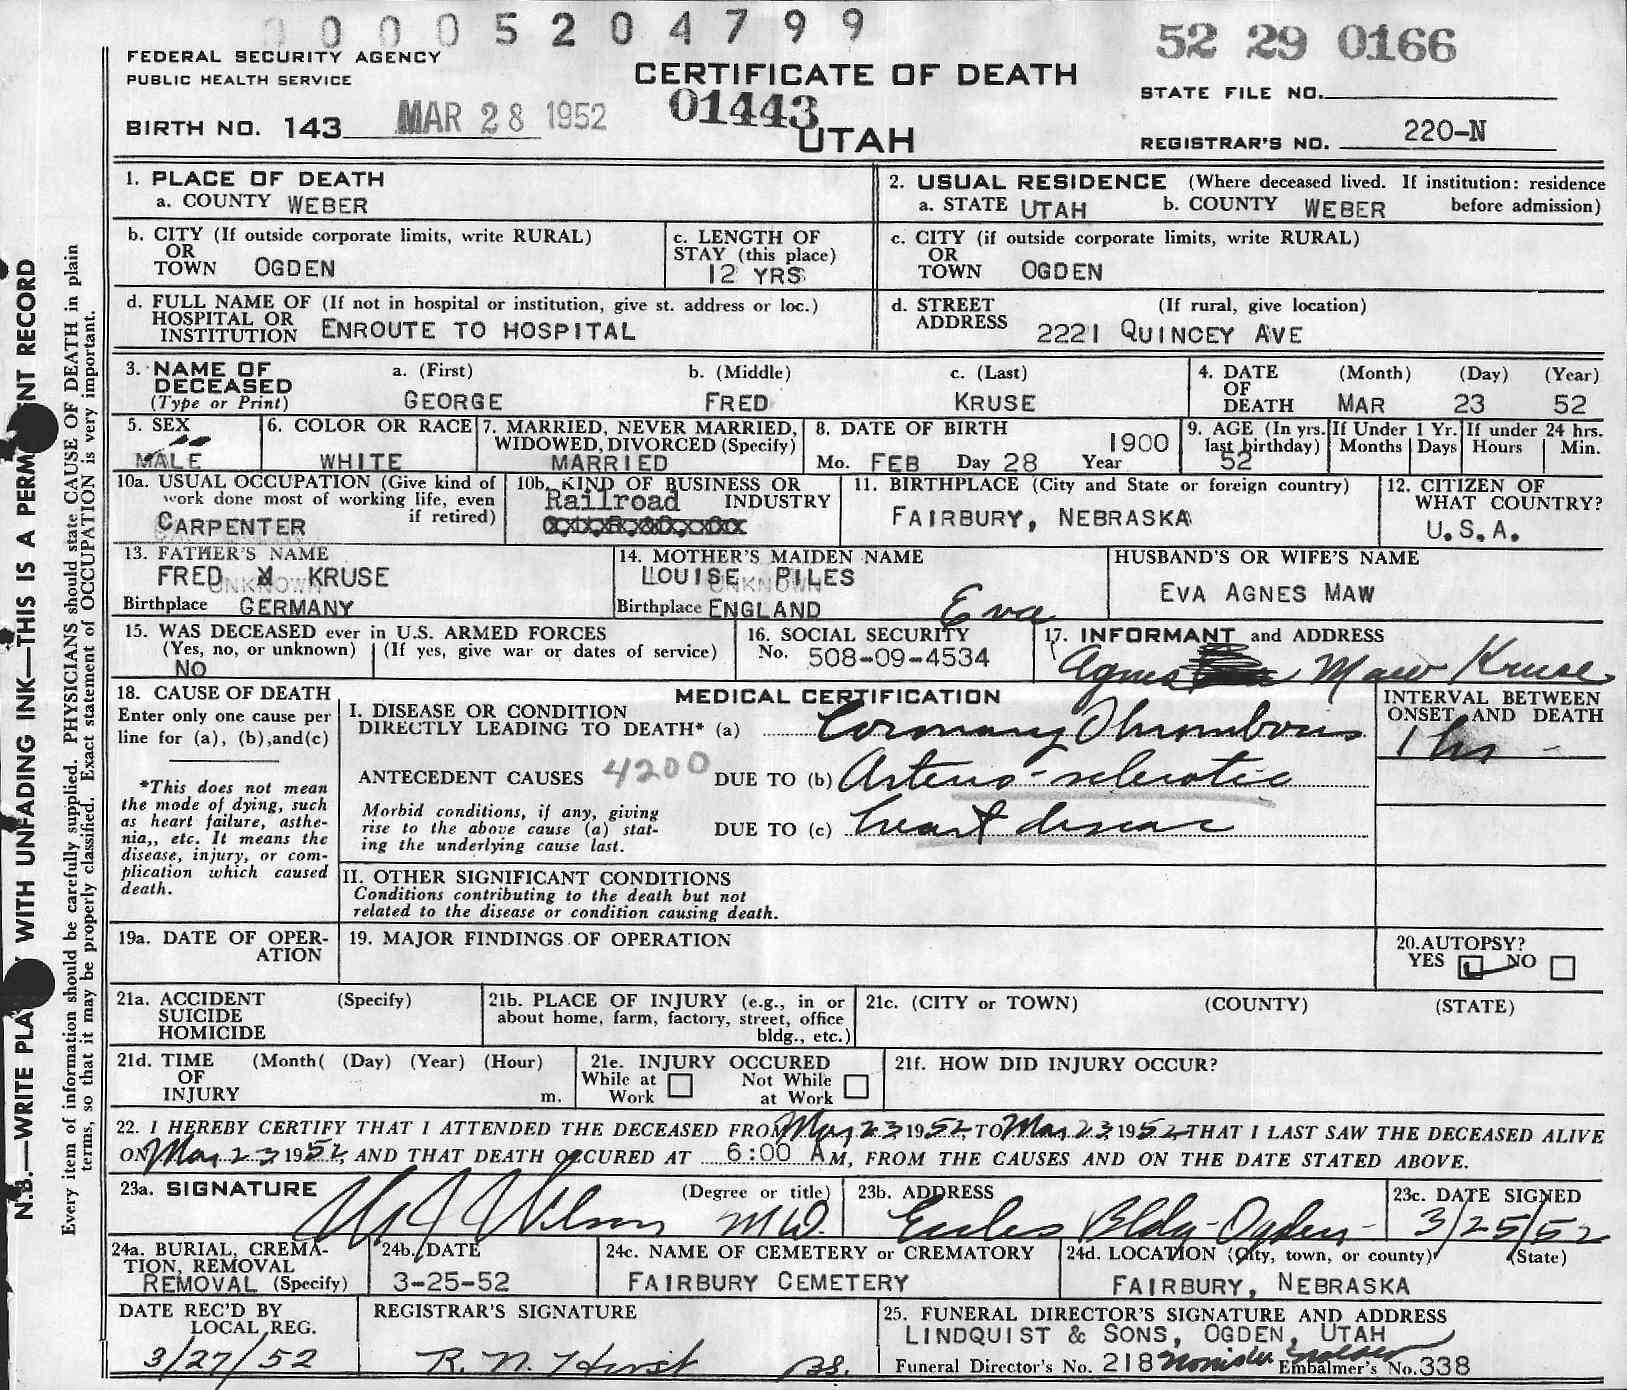 0 0 0 5 2 0 4 7 9 9
52 29 0166
FEDERAL SECURITY AGENCY
PUBLIC HEALTH SERVICE
CERTIFICATE OF DEATH
STATE FILE NO.
BIRTH NO. 143 MAR 28 1952
01443
UTAH
REGISTRAR'S NO. 220-N
N.B.—WRITE PLA WITH UNFADING INK—THIS IS A PERM NT RECORD
Every item of information should be carefully supplied. PHYSICIANS should state CAUSE OF DEATH in plain
terms, so that it may be properly classified. Exact statement of OCCUPATION is very important.
1. PLACE OF DEATH
a. COUNTY WEBER
2. USUAL RESIDENCE (Where deceased lived. If institution: residence
a. STATE UTAH b. COUNTY WEBER before admission)
b. CITY (If outside corporate limits, write RURAL)
OR
TOWN OGDEN
c. LENGTH OF
STAY (this place)
12 YRS
c. CITY (if outside corporate limits, write RURAL)
OR
TOWN OGDEN
d. FULL NAME OF (If not in hospital or institution, give st. address or loc.)
HOSPITAL OR
INSTITUTION ENROUTE TO HOSPITAL
d. STREET (If rural, give location)
ADDRESS 2221 QUINCEY AVE
3. NAME OF
DECEASED
(Type or Print)
a. (First)
GEORGE
b. (Middle)
FRED
c. (Last)
KRUSE
4. DATE (Month) (Day) (Year)
OF
DEATH MAR 23 52
5. SEX
MALE
6. COLOR OR RACE
WHITE
7. MARRIED, NEVER MARRIED,
WIDOWED, DIVORCED (Specify)
MARRIED
8. DATE OF BIRTH 1900
Mo. FEB Day 28 Year
9. AGE (In yrs.
last birthday)
52
If Under 1 Yr.
Months Days
If under 24 hrs.
Hours Min.
10a. USUAL OCCUPATION (Give kind of
work done most of working life, even
if retired)
CARPENTER
10b. KIND OF BUSINESS OR
Railroad INDUSTRY
11. BIRTHPLACE (City and State or foreign country)
FAIRBURY, NEBRASKA
12. CITIZEN OF
WHAT COUNTRY?
U.S.A.
13. FATHER'S NAME
FRED M KRUSE
UNKNOWN
Birthplace GERMANY
14. MOTHER'S MAIDEN NAME
LOUISE PILES
UNKNOWN
Birthplace ENGLAND
HUSBAND'S OR WIFE'S NAME
EVA AGNES MAW
15. WAS DECEASED ever in U.S. ARMED FORCES
(Yes, no, or unknown) (If yes, give war or dates of service)
NO
16. SOCIAL SECURITY
No. 508-09-4534
17. INFORMANT and ADDRESS
Eva
Agnes Maw Kruse
18. CAUSE OF DEATH
Enter only one cause per
line for (a), (b), and (c)
*This does not mean
the mode of dying, such
as heart failure, asthe-
nia,, etc. It means the
disease, injury, or com-
plication which caused
death.
MEDICAL CERTIFICATION
I. DISEASE OR CONDITION
DIRECTLY LEADING TO DEATH* (a) Coronary Thrombosis
ANTECEDENT CAUSES 4200 DUE TO (b) Arterio-sclerotic
Morbid conditions, if any, giving
rise to the above cause (a) stat-
ing the underlying cause last.
DUE TO (c) heart disease
INTERVAL BETWEEN
ONSET AND DEATH
1 hr -
II. OTHER SIGNIFICANT CONDITIONS
Conditions contributing to the death but not
related to the disease or condition causing death.
19a. DATE OF OPER-
ATION
19. MAJOR FINDINGS OF OPERATION
20. AUTOPSY?
YES NO
21a. ACCIDENT (Specify)
SUICIDE
HOMICIDE
21b. PLACE OF INJURY (e.g., in or
about home, farm, factory, street, office
bldg., etc.)
21c. (CITY or TOWN) (COUNTY) (STATE)
21d. TIME (Month( (Day) (Year) (Hour)
OF
INJURY m.
21e. INJURY OCCURED
While at Not While
Work at Work
21f. HOW DID INJURY OCCUR?
22. I HEREBY CERTIFY THAT I ATTENDED THE DECEASED FROM Mar 23 1952, TO Mar 23, 1952 THAT I LAST SAW THE DECEASED ALIVE
ON Mar 23 1952, AND THAT DEATH OCCURED AT 6:00 AM, FROM THE CAUSES AND ON THE DATE STATED ABOVE.
23a. SIGNATURE (Degree or title)
Wilson M.D.
23b. ADDRESS
Eccles Bldg - Ogden -
23c. DATE SIGNED
3/25/52
24a. BURIAL, CREMA-
TION, REMOVAL
REMOVAL (Specify)
24b. DATE
3-25-52
24c. NAME OF CEMETERY or CREMATORY
FAIRBURY CEMETERY
24d. LOCATION (City, town, or county) (State)
FAIRBURY, NEBRASKA
DATE REC'D BY
LOCAL REG.
3/27/52
REGISTRAR'S SIGNATURE
R. N. Hirst BS.
25. FUNERAL DIRECTOR'S SIGNATURE AND ADDRESS
LINDQUIST & SONS, OGDEN, UTAH
Funeral Director's No. 218 Embalmer's No. 338